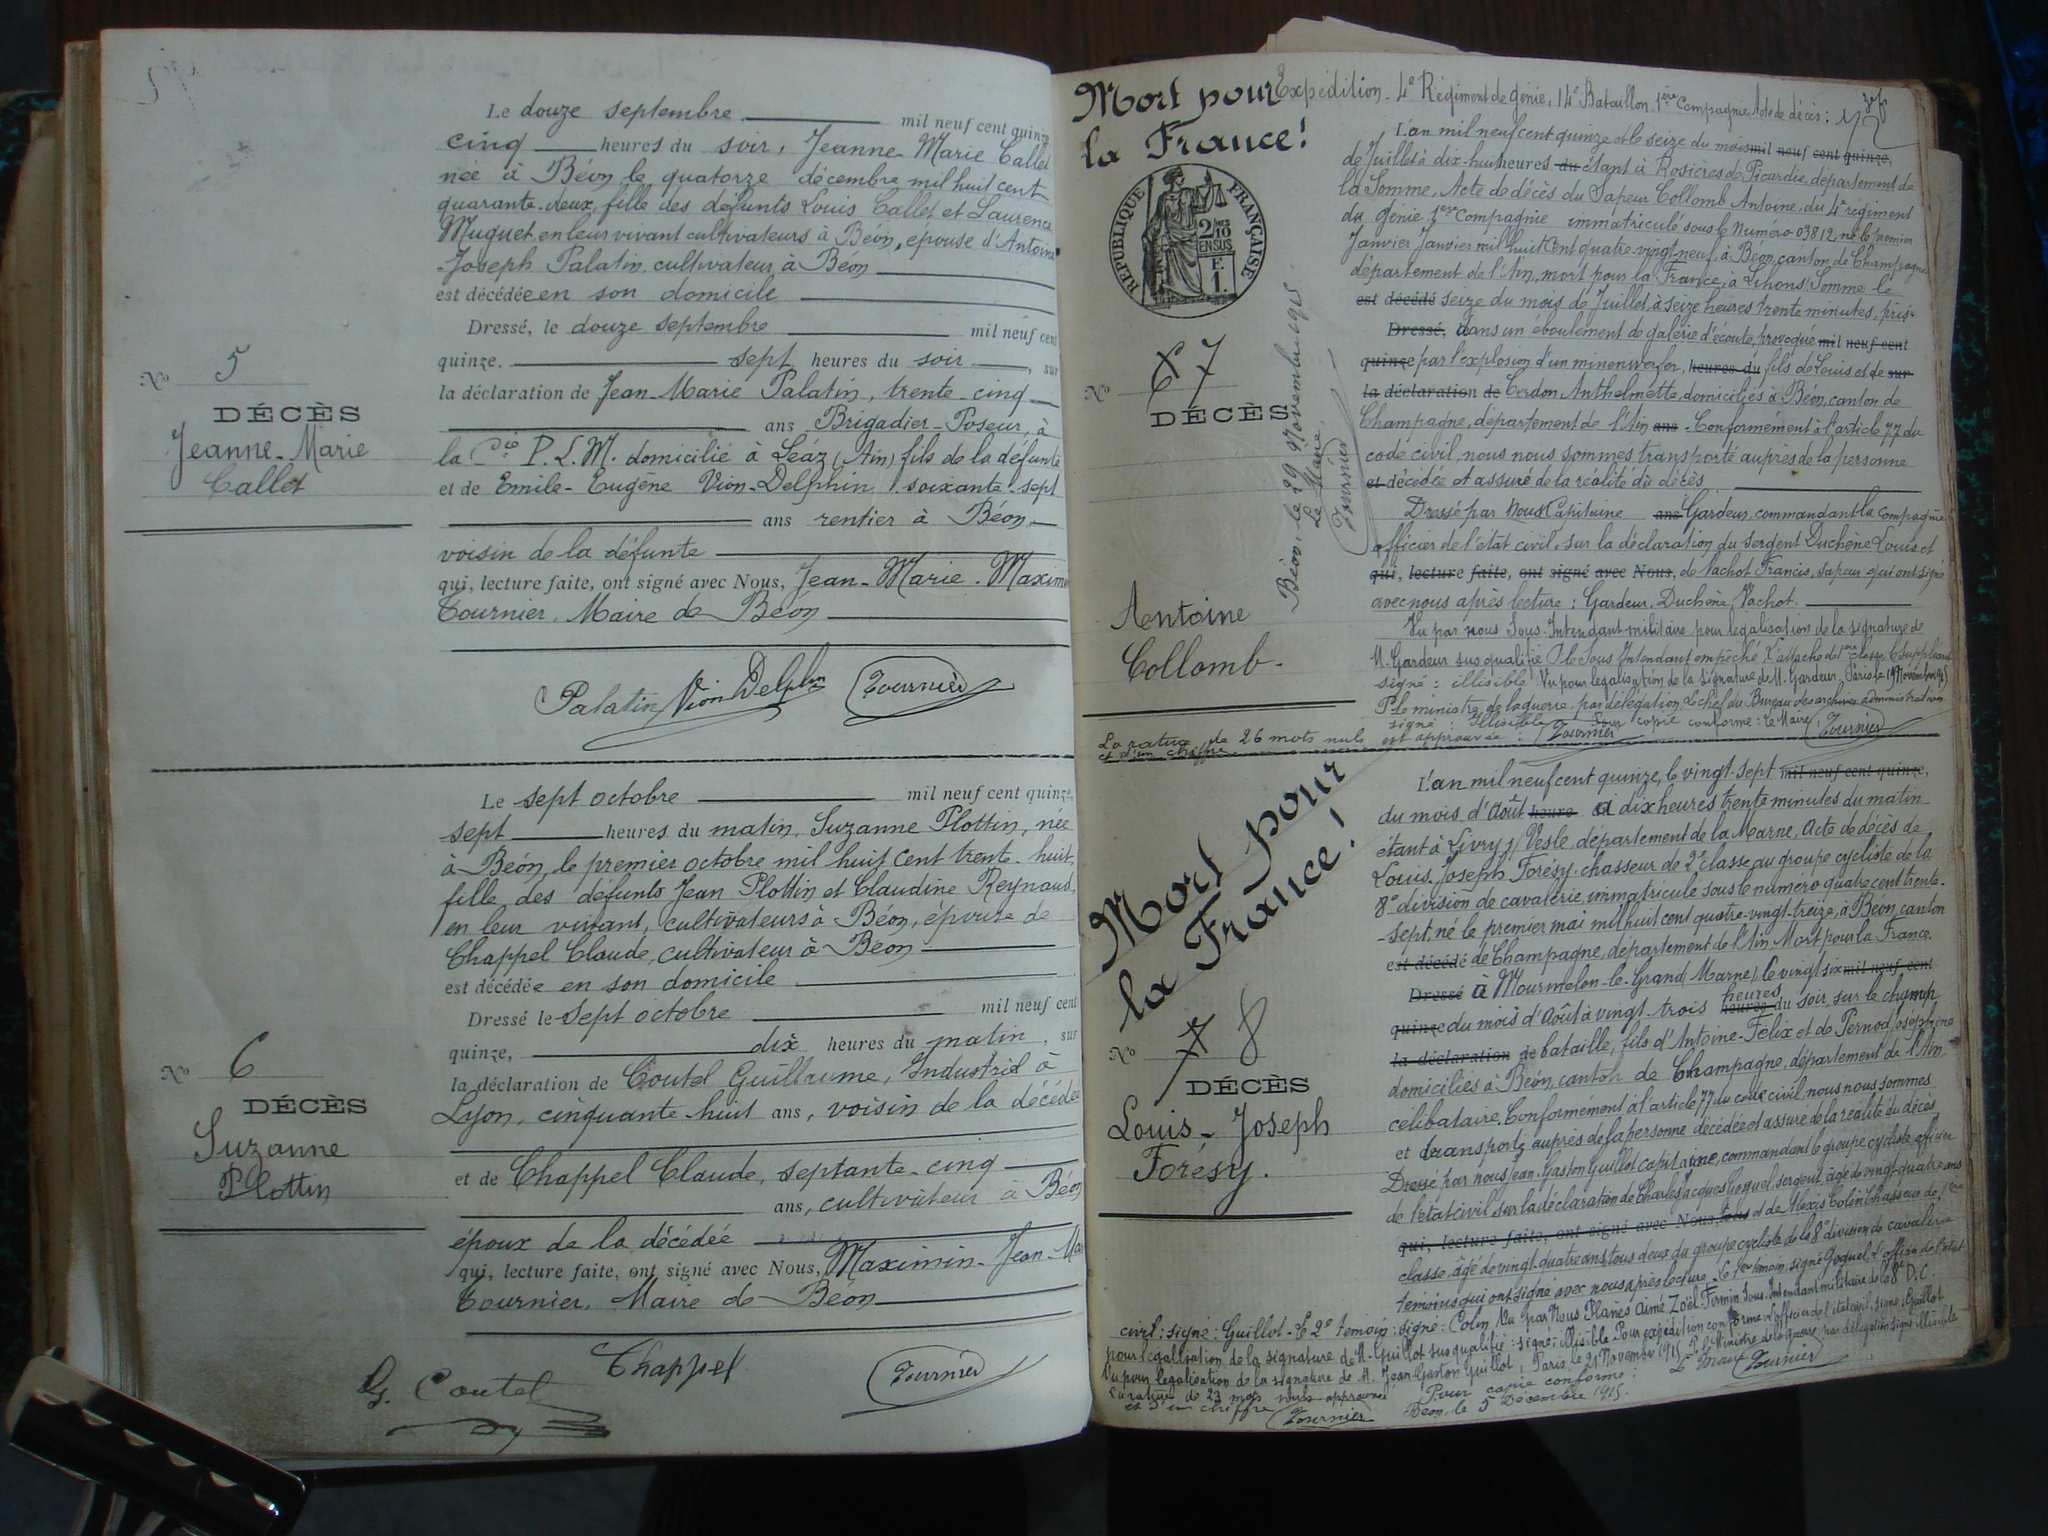 Le douze septembre mil neuf cent quinze
cinq heures du soir, Jeanne-Marie Callet
née à Béon le quatorze décembre mil huit cent
quarante-deux, fille des défunts Louis Callet et Laurence
Muguet en leur vivant cultivateurs à Béon, épouse d'Antoine
-Joseph Palatin, cultivateur à Béon
est décédée en son domicile
Dressé, le douze septembre mil neuf cent
quinze. sept heures du soir, sur
la déclaration de Jean-Marie Palatin, trente-cinq
ans Brigadier-Poseur, à
la Cie P.L.M. domicilié à Léaz (Ain) fils de la défunte
et de Emile-Eugène Vion-Delphin soixante-sept
ans rentier à Béon
voisin de la défunte
qui, lecture faite, ont signé avec Nous, Jean-Marie-Maximin
Tournier, Maire de Béon
Palatin Vion Delphin Tournier
No 5
DÉCÈS
Jeanne-Marie
Callet
Le sept octobre mil neuf cent quinze
sept heures du matin, Suzanne Plottin, née
à Béon, le premier octobre mil huit cent trente-huit,
fille des défunts Jean Plottin et Claudine Reynaud,
en leur vivant, cultivateurs à Béon, épouse de
Chappel Claude, cultivateur à Béon
est décédée en son domicile
Dressé le sept octobre mil neuf cent
quinze, dix heures du matin, sur
la déclaration de Coutel Guillaume, Industriel à
Lyon, cinquante-huit ans, voisin de la décédée
et de Chappel Claude, septante-cinq
ans, cultivateur à Béon
époux de la décédée
qui, lecture faite, ont signé avec Nous, Maximin-Jean-Ma
Tournier, Maire de Béon
G. Coutel Chappel Tournier
No 6
DÉCÈS
Suzanne
Plottin
Mort pour
la France!
RÉPUBLIQUE FRANÇAISE
2/10 EN SUS
E.
1.
No 6 7
DÉCÈS
Béon, le 29 Novembre 1915
Le Maire,
Tournier
Antoine
Collomb-
Expédition - 4e Régiment de Génie, 14e Bataillon, 1ère Compagnie Acte de décès:
L'an mil neuf cent quinze et le seize du mois mil neuf cent quinze,
de Juillet à dix-huit heures du étant à Rosières de Picardie, département de
la Somme, Acte de décès du Sapeur Collomb Antoine, du 4e régiment
du génie, 1ère Compagnie immatriculé sous le Numéro 03812, né le premier
Janvier Janvier mil huit cent quatre-vingt-neuf, à Béon, canton de Champagne
département de l'Ain, mort pour la France, à Lihons, Somme le
est décédé seize du mois de Juillet, à seize heures trente minutes, pris
Dressé, dans un éboulement de galerie d'écoute, provoqué mil neuf cent
quinze par l'explosion d'un minenwerfer, heures du fils de Louis et de sur
la déclaration de Cordon Anthelmette, domiciliés à Béon, canton de
Champagne, département de l'Ain ans - Conformément à l'article 77 du
code civil, nous nous sommes transporté auprès de la personne
et décédée et assuré de la réalité du décès
Dressé par Nous Capitaine ans Gardeur, commandant la Compagnie
officier de l'état civil, sur la déclaration du sergent Duchêne Louis et
qui, lecture faite, ont signé avec Nous, de Vachot Francis, sapeur qui ont signé
avec nous après lecture: Gardeur, Duchêne, Vachot.
Vu par nous Sous-Intendant militaire pour légalisation de la signature de
M. Gardeur sus qualifié P. le Sous Intendant empêché L'attaché de 1ère classe Suppléant
signé: illisible Vu pour légalisation de la signature de M. Gardeur, Paris le 19 Novembre 1915
P. le ministre de la guerre, par délégation, Le chef du Bureau des archives administratives
signé: Illisible Pour copie conforme: Le Maire, Tournier
La rature de 26 mots nuls est approuvée: Tournier
et d'un chiffre
Mort pour
la France!
No 7 8
DÉCÈS
Louis-Joseph
Forésy.
L'an mil neuf cent quinze, le vingt-sept mil neuf cent quinze,
du mois d'Août heure à dix heures trente minutes du matin
étant à Livry s/ Vesle, département de la Marne, Acte de décès de
Louis, Joseph Forésy, chasseur de 2e classe au groupe cycliste de la
8e division de cavalerie, immatriculé sous le numéro quatre cent trente-
-sept, né le premier mai mil huit cent quatre-vingt-treize, à Béon, canton
est décédé de Champagne, département de l'Ain. Mort pour la France.
Dressé à Mourmelon-le-Grand (Marne) le vingt six mil neuf cent
quinze du mois d'Août à vingt-trois heures heures du soir, sur le champ
la déclaration de bataille, fils d'Antoine-Félix et de Pernod Joséphine
domiciliés à Béon, canton de Champagne, département de l'Ain
célibataire. Conformément à l'article 77 du code civil, nous nous sommes
et transporté auprès de la personne décédée et assuré de la réalité du décès
Dressé par nous Jean-Gaston Guillot capitaine, commandant le groupe cycliste officier
de l'état civil, sur la déclaration de Charles Jacques Goguel, sergent, âgé de vingt-quatre ans
qui, lecture faite, ont signé avec Nous, tous et de Alexis Colin Chasseur de 1ère
classe, âgé de vingt-quatre ans, tous deux du groupe cycliste de la 8e division de cavalerie
témoins qui ont signé avec nous après lecture. Le 1er témoin, signé Goguel, L'officier de l'état
civil: signé: Guillot - Le 2e témoin: signé: Colin Vu par Nous Planes Aimé Zoël-Firmin, Sous-Intendant militaire de la 8e D.C.
pour légalisation de la signature de M. Guillot sus qualifié: signé: illisible Pour expédition conforme l'officier de l'état civil, signé: Guillot
Vu pour légalisation de la signature de M. Jean-Gaston Guillot, Paris, le 21 Novembre 1915 P. le Ministre de la guerre, par délégation signé illisible
La rature de 23 mots nuls approuvée Pour copie conforme: Le Maire Tournier
et d'un chiffre Tournier Béon, le 5 Décembre 1915.